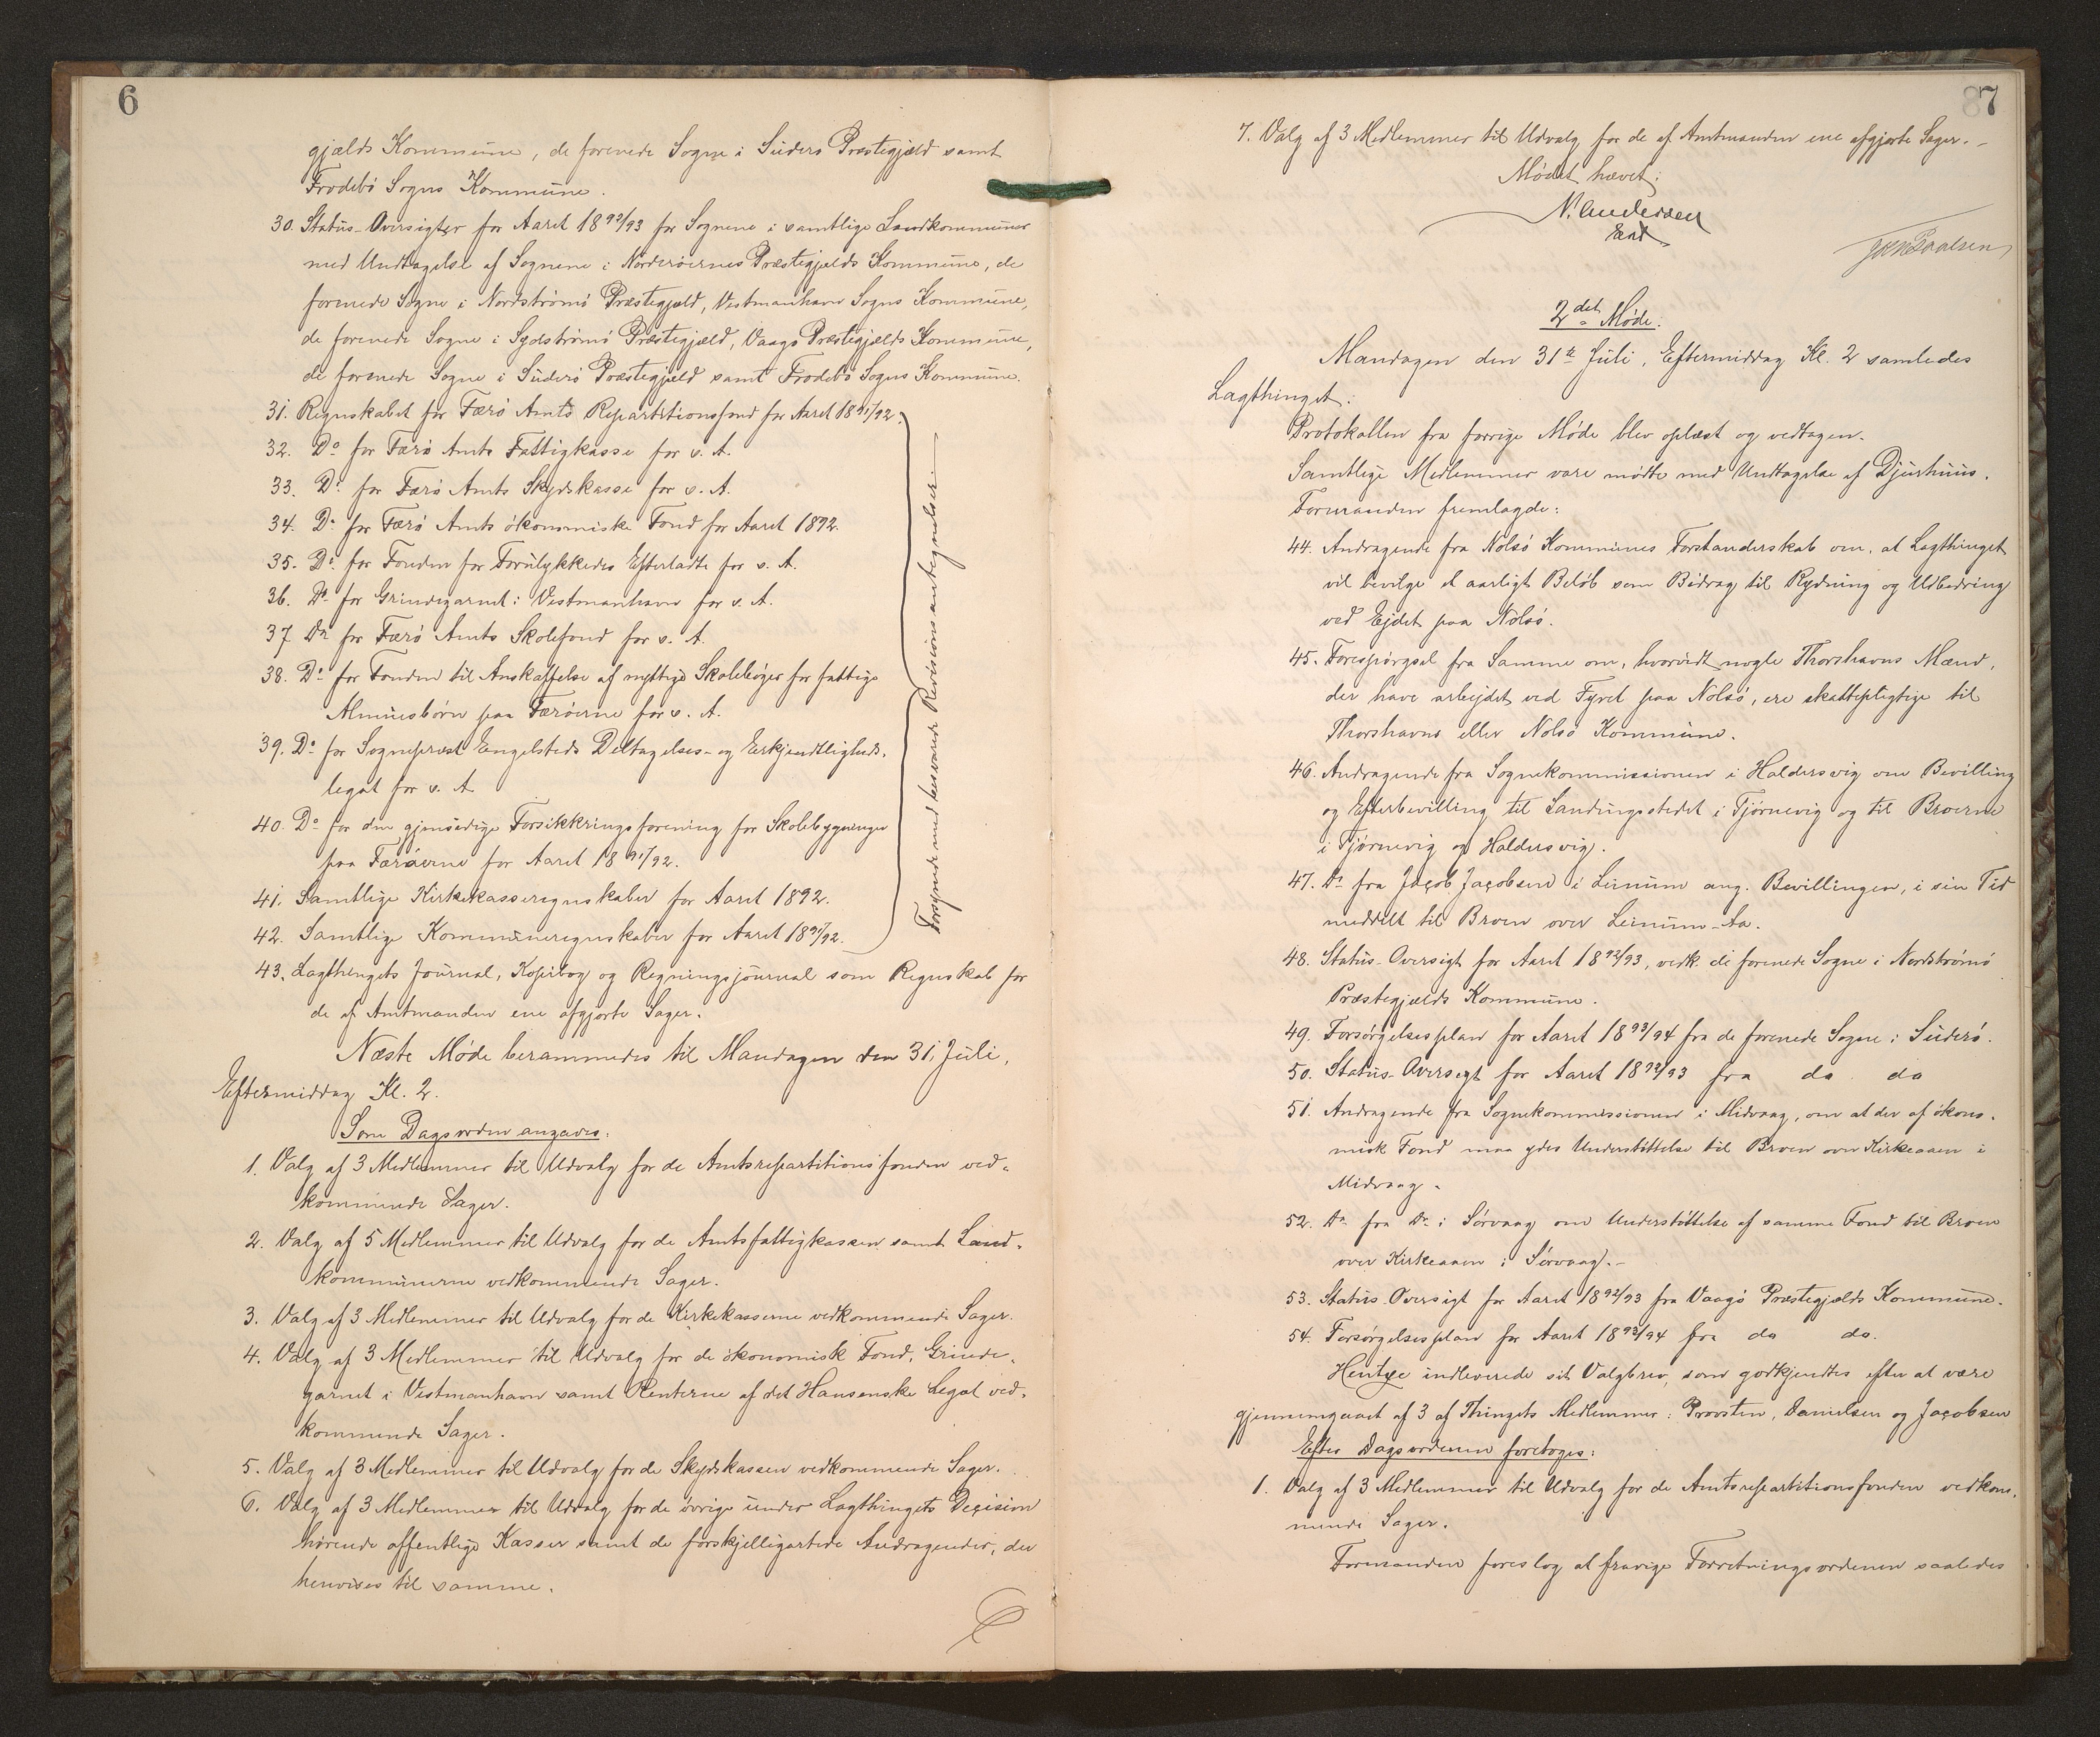 6
gjælds Kommune, de forenede Sogne i Süderø Præstegjæld samt
Frodebø Sogns Kommune.
30. Status-Oversigter for Aaret 1892/93 for Sognene i samtlige Landkommuner
med Undtagelse af Sognene i Norderøernes Præstegjælds Kommune, de
forenede Sogne i Nordstrømø Præstegjæld, Vestmanhavn Sogns Kommune,
de forenede Sogne i Sydstrømø Præstegjæld, Vaagø Præstegjælds Kommune,
de forenede Sogne i Süderø Præstegjæld samt Frodebø Sogns Kommune.
31. Regnskabet for Færø Amts Repartitionsfond for Aaret 1891/92.
32. Do for Færø Amts Fattigkasse for s. A.
33. Do for Færø Amts Skydskasse for s. A.
34. Do for Færø Amts økonomiske Fond for Aaret 1892.
35. Do for Fonden for Forulykkedes Efterladte for s. A.
36. Do for Grindegarnet i Vestmanhavn for s. A.
37. Do for Færø Amts Skolefond for s. A.
38. Do for Fonden til Anskaffelse af nyttige Skolebøger for fattige
Almuesbørn paa Færøerne for s. A.
39. Do for Sognepræst Engelsteds Deltagelses- og Erkjendtligheds-
legat for s. A.
40. Do for den gjensidige Forsikkringsforening for Skolebygninger
paa Færøerne for Aaret 1891/92.
41. Samtlige Kirkekasseregnskaber for Aaret 1892.
42. Samtlige Kommuneregnskaber for Aaret 1891/92.
Forsynede med besvarede Revisionsantegnelser.
43. Lagthingets Journal, Kopibog og Regningsjournal som Regnskab for
de af Amtmanden ene afgjorte Sager.
Næste Møde berammedes til Mandagen den 31. Juli,
Eftermiddag Kl. 2.
Som Dagsorden angaves:
1. Valg af 3 Medlemmer til Udvalg for de Amtsrepartitionsfonden ved-
kommende Sager.
2. Valg af 5 Medlemmer til Udvalg for de Amtsfattigkassen samt Land-
kommunerne vedkommende Sager.
3. Valg af 3 Medlemmer til Udvalg for de Kirkekasserne vedkommende Sager.
4. Valg af 3 Medlemmer til Udvalg for de økonomisk Fond, Grinde-
garnet i Vestmanhavn samt Renterne af det Hansenske Legat ved-
kommende Sager.
5. Valg af 3 Medlemmer til Udvalg for de Skydskassen vedkommende Sager.
6. Valg af 3 Medlemmer til Udvalg for de øvrige under Lagthingets Decision
hørende offentlige Kasser samt de forskjelligartede Andragender, der
henvises til samme.
7
7. Valg af 3 Medlemmer til Udvalg for de af Amtmanden ene afgjorte Sager.
Mødet hævet.
N. Andersen
2det Møde.
Mandagen den 31te Juli, Eftermiddag Kl. 2 samledes
Lagthinget.
Protokollen fra forrige Møde blev oplæst og vedtagen.
Samtlige Medlemmer vare mødte med Undtagelse af Djurhuus.
Formanden fremlagde:
44. Andragende fra Nolsø Kommunes Forstanderskab om, at Lagthinget
vil bevilge et aarligt Beløb som Bidrag til Rydning og Udbedring
ved Ejdet paa Nolsø.
45. Forespørgsel fra Samme om, hvorvidt nogle Thorshavns Mænd,
der have arbejdet ved Fyret paa Nolsø, ere skattepligtige til
Thorshavns eller Nolsø Kommune.
46. Andragende fra Sognekommissionen i Haldersvig om Bevilling
og Efterbevilling til Landingsstedet i Tjørnevig og til Broerne
i Tjørnevig og Haldersvig.
47. Do fra Jacob Jacobsen i Leinum ang. Bevillingen, i sin Tid
meddelt til Broen over Leinum-Aa.
48. Status-Oversigt for Aaret 1892/93, vedk. de forenede Sogne i Nordstrømø
Præstegjælds Kommune.
49. Forsørgelsesplan for Aaret 1893/94 fra de forenede Sogne i Süderø.
50. Status-Oversigt for Aaret 1892/93 fra do do
51. Andragende fra Sognekommissionen i Midvaag, om at der af økono-
misk Fond maa ydes Understøttelse til Broen over Kirkeaaen i
Midvaag.
52. Do fra Do i Sørvaag om Understøttelse af samme Fond til Broen
over Kirkeaaen i Sørvaag.
53. Status-Oversigt for Aaret 1892/93 fra Vaagø Præstegjælds Kommune.
54. Forsørgelsesplan for Aaret 1893/94 fra do do.
Hentze indleverede sit Valgbrev, som godkjendtes efter at være
gjennemgaaet af 3 af Thingets Medlemmer: Provsten, Danielsen og Jacobsen
Efter Dagsordenen foretoges:
1. Valg af 3 Medlemmer til Udvalg for de Amtsrepartitionsfonden vedkom-
mende Sager.
Formanden foreslog at fravige Forretningsordenen saaledes